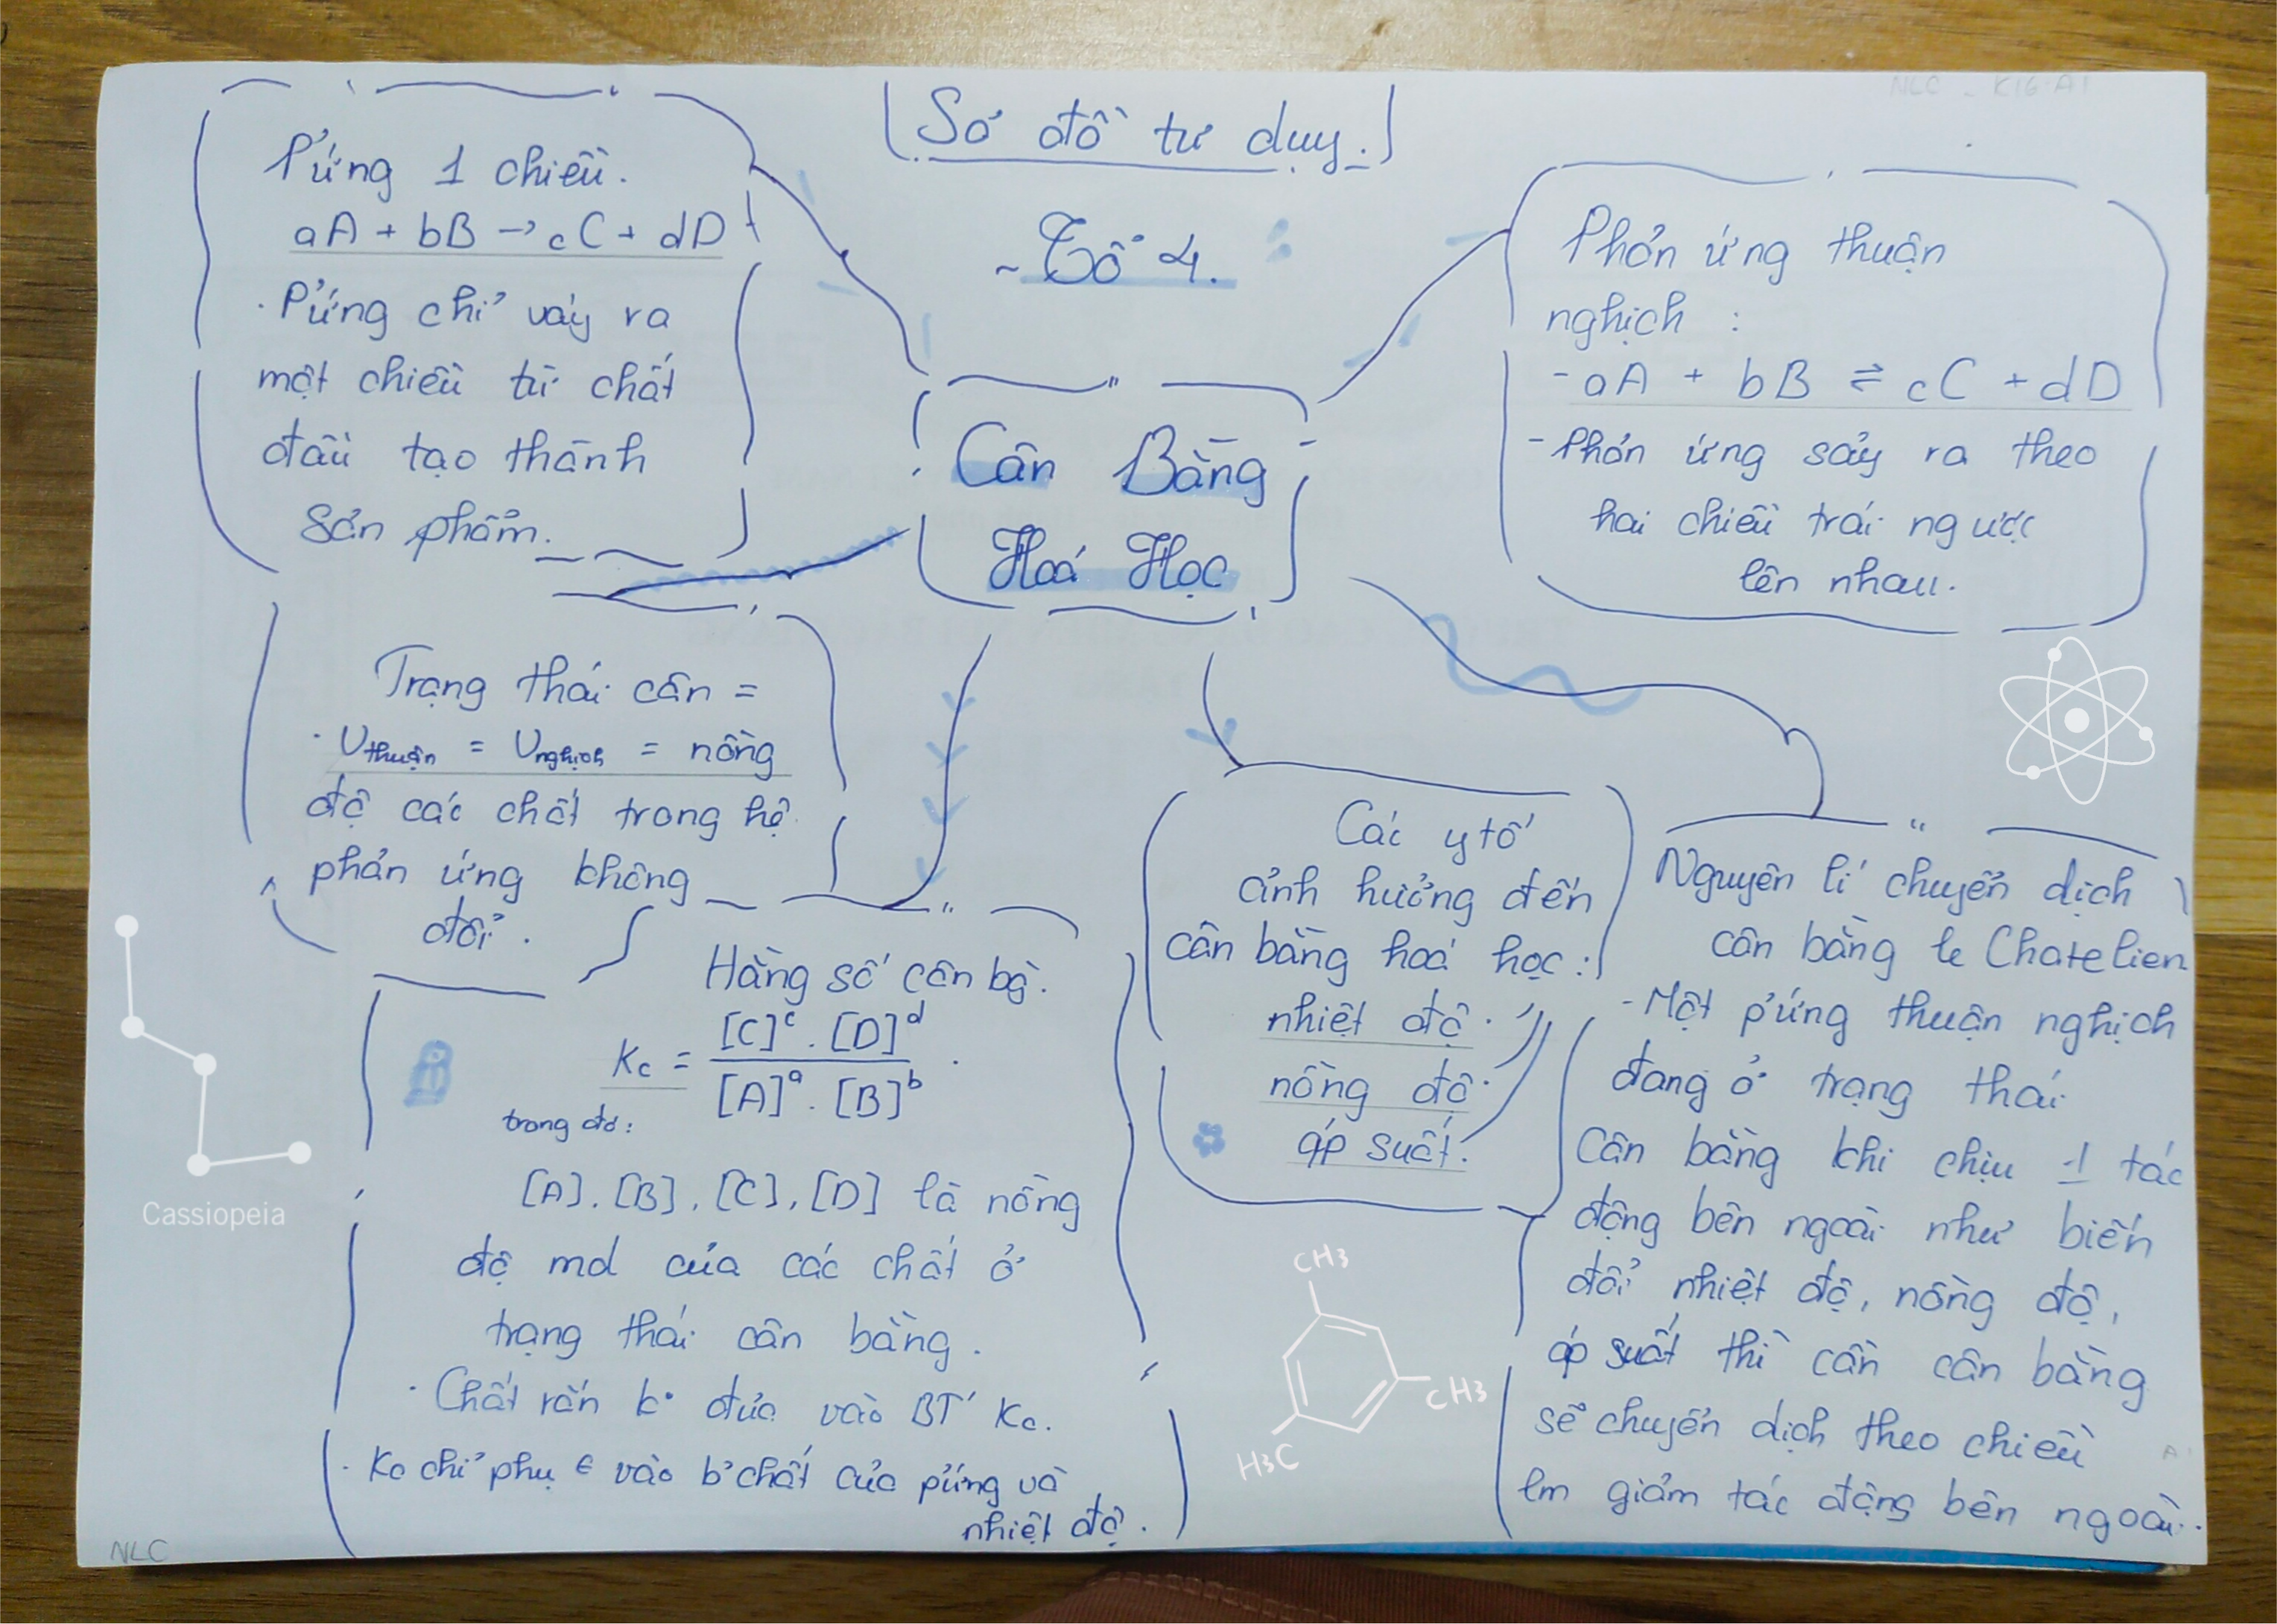 NLC - K16 A1
Sơ đồ tư duy.
~ Tổ 4.
Cân Bằng
Hoá Học
Pứng 1 chiều.
aA + bB → cC + dD
. Pứng chỉ xảy ra
một chiều từ chất
đầu tạo thành
sản phẩm.
Phản ứng thuận
nghịch :
- aA + bB ⇌ cC + dD
- Phản ứng sảy ra theo
hai chiều trái ngược
lên nhau.
Trạng thái cân =
. Vthuận = Vnghịch = nồng
độ các chất trong hệ
phản ứng không
đổi.
Hằng số cân bg.
Kc = [C]^c . [D]^d / [A]^a . [B]^b .
trong đó:
[A]. [B], [C], [D] là nồng
độ mol của các chất ở
trạng thái cân bằng.
. Chất rắn k° đưa vào BT' Kc.
. Kc chỉ phụ € vào b' chất của pứng và
nhiệt độ.
Các y tố
ảnh hưởng đến
cân bằng hoá học:
nhiệt độ.
nồng độ.
áp suất.
Nguyên lí chuyển dịch
cân bằng le Chatelien
- Một pứng thuận nghịch
đang ở trạng thái
Cân bằng khi chịu 1 tác
động bên ngoài như biến
đổi nhiệt độ, nồng độ,
áp suất thì cần cân bằng
sẽ chuyển dịch theo chiều
lm giảm tác động bên ngoài.
Cassiopeia
CH3
CH3
H3C
NLC